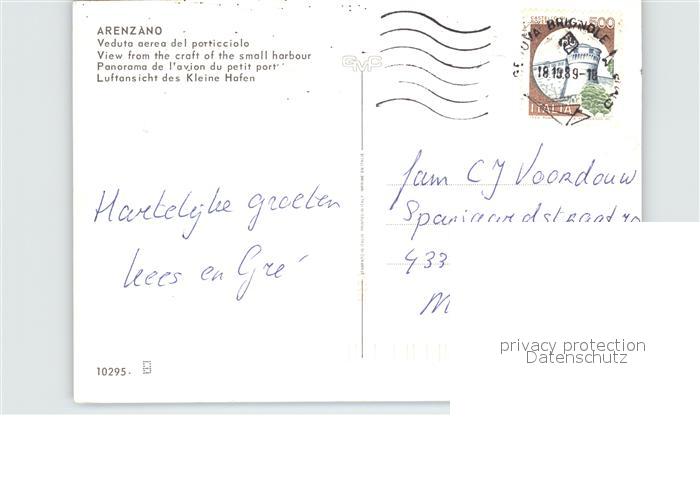 ARENZANO
Veduta aerea del porticciolo
View from the craft of the small harbour
Panorama de l'avion du petit port
Luftansicht des Kleine Hafen
GMC
500
GENOVA BRIGNOLE
18.10.89-18
ITALIA
Hartelijke groeten
Kees en Gré
fam CJ Voordouw
Spanjaardstraat
433
M
privacy protection
Datenschutz
10295.